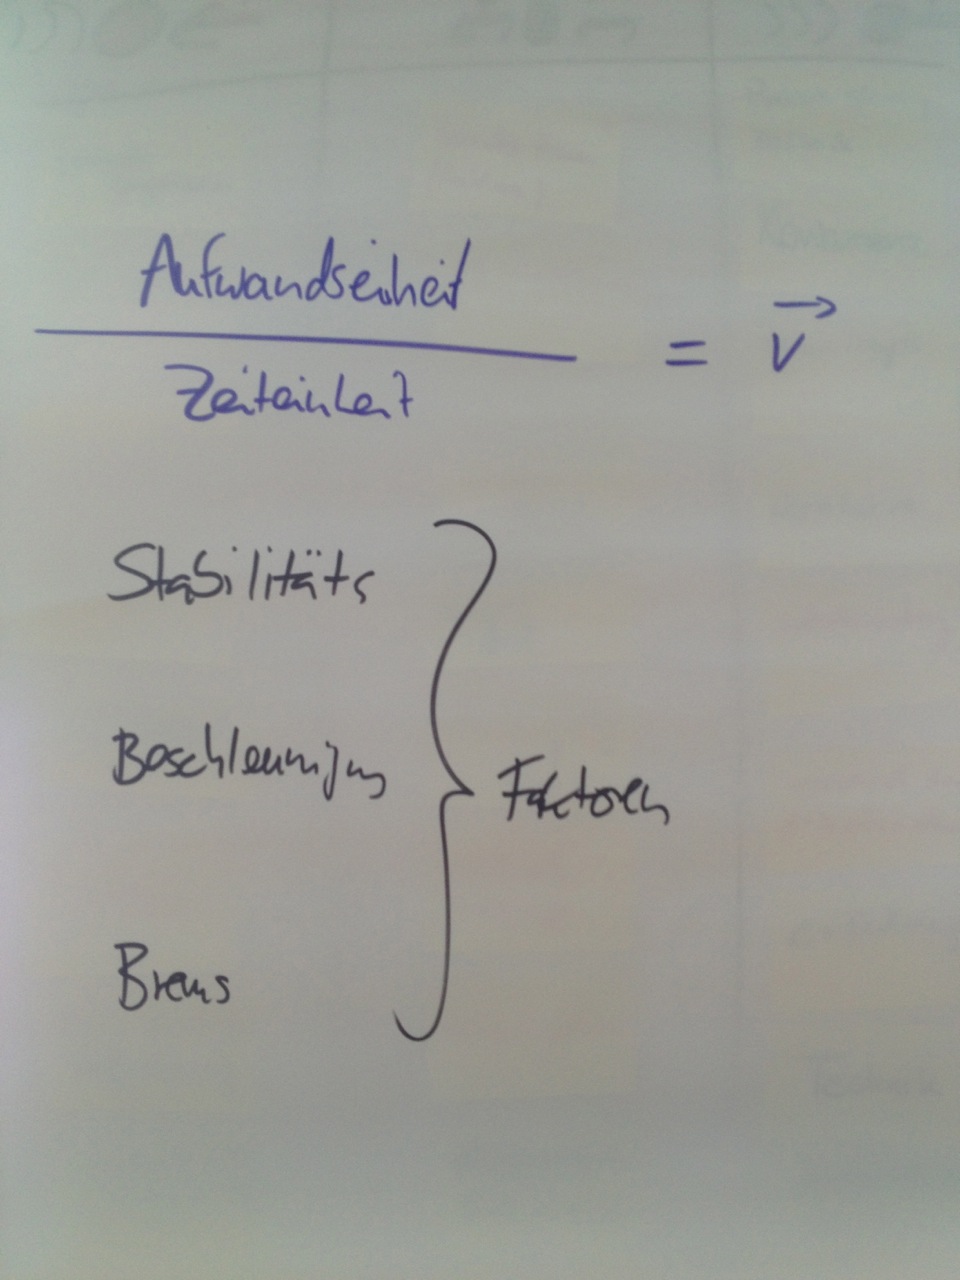 Aufwandseinheit
Zeiteinheit
= v
Stabilitäts
Beschleunigungs
Faktoren
Brems